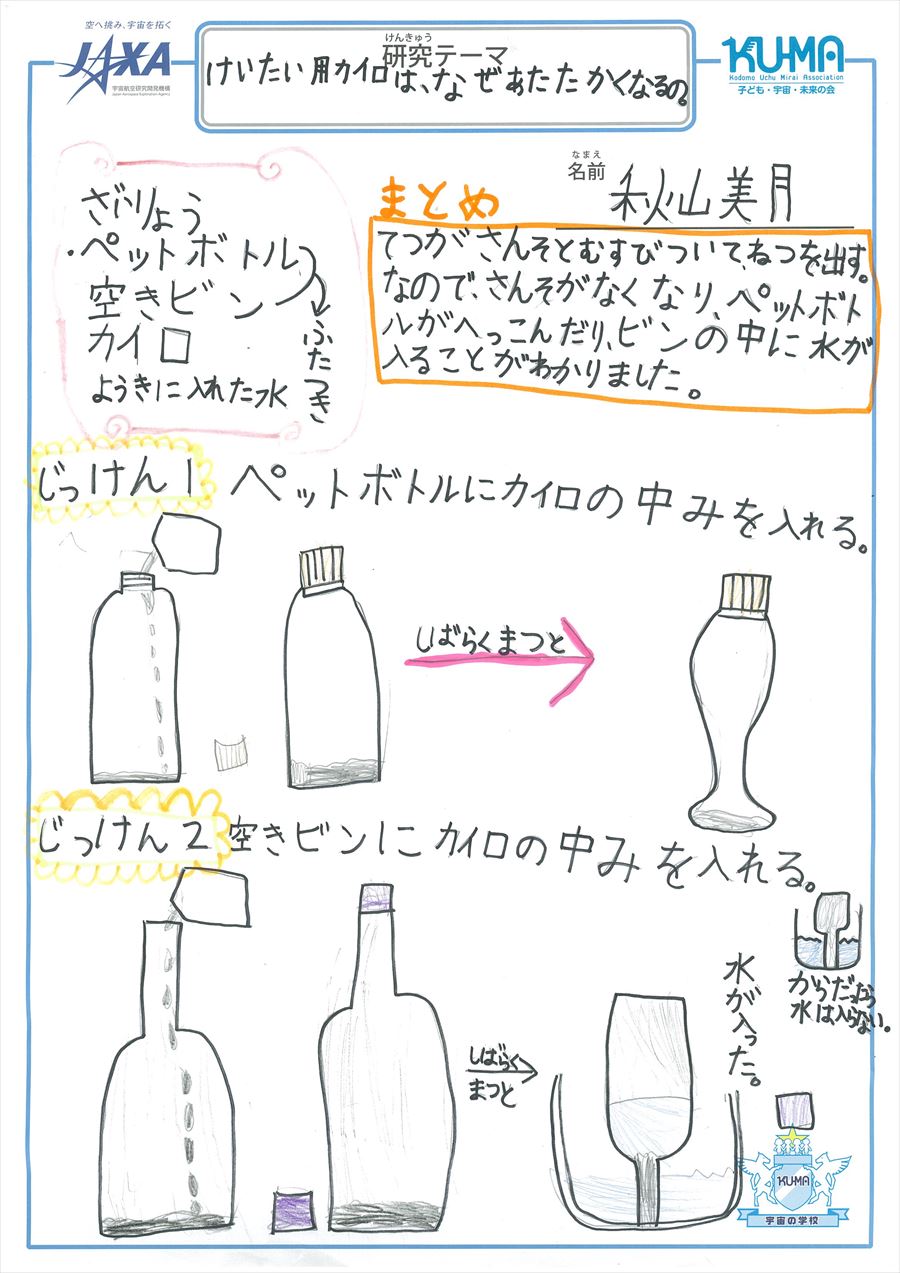 空へ挑み、宇宙を拓く
JAXA
宇宙航空研究開発機構
Japan Aerospace Exploration Agency
けんきゅう
研究テーマ
けいたい用カイロは、なぜあたたかくなるの。
KUMA
Kodomo Uchu Mirai Association
子ども・宇宙・未来の会
なまえ
名前
秋山美月
ざいりょう
・ペットボトル
空きビン
ふたつき
カイロ
ようきに入れた水
まとめ
てつがさんそとむすびついて、ねつを出す。
なので、さんそがなくなり、ペットボト
ルがへっこんだり、ビンの中に水が
入ることがわかりました。
じっけん1 ペットボトルにカイロの中みを入れる。
しばらくまつと
じっけん2 空きビンにカイロの中みを入れる。
しばらく
まつと
水が入った。
からだったら
水は入らない。
KUMA
宇宙の学校